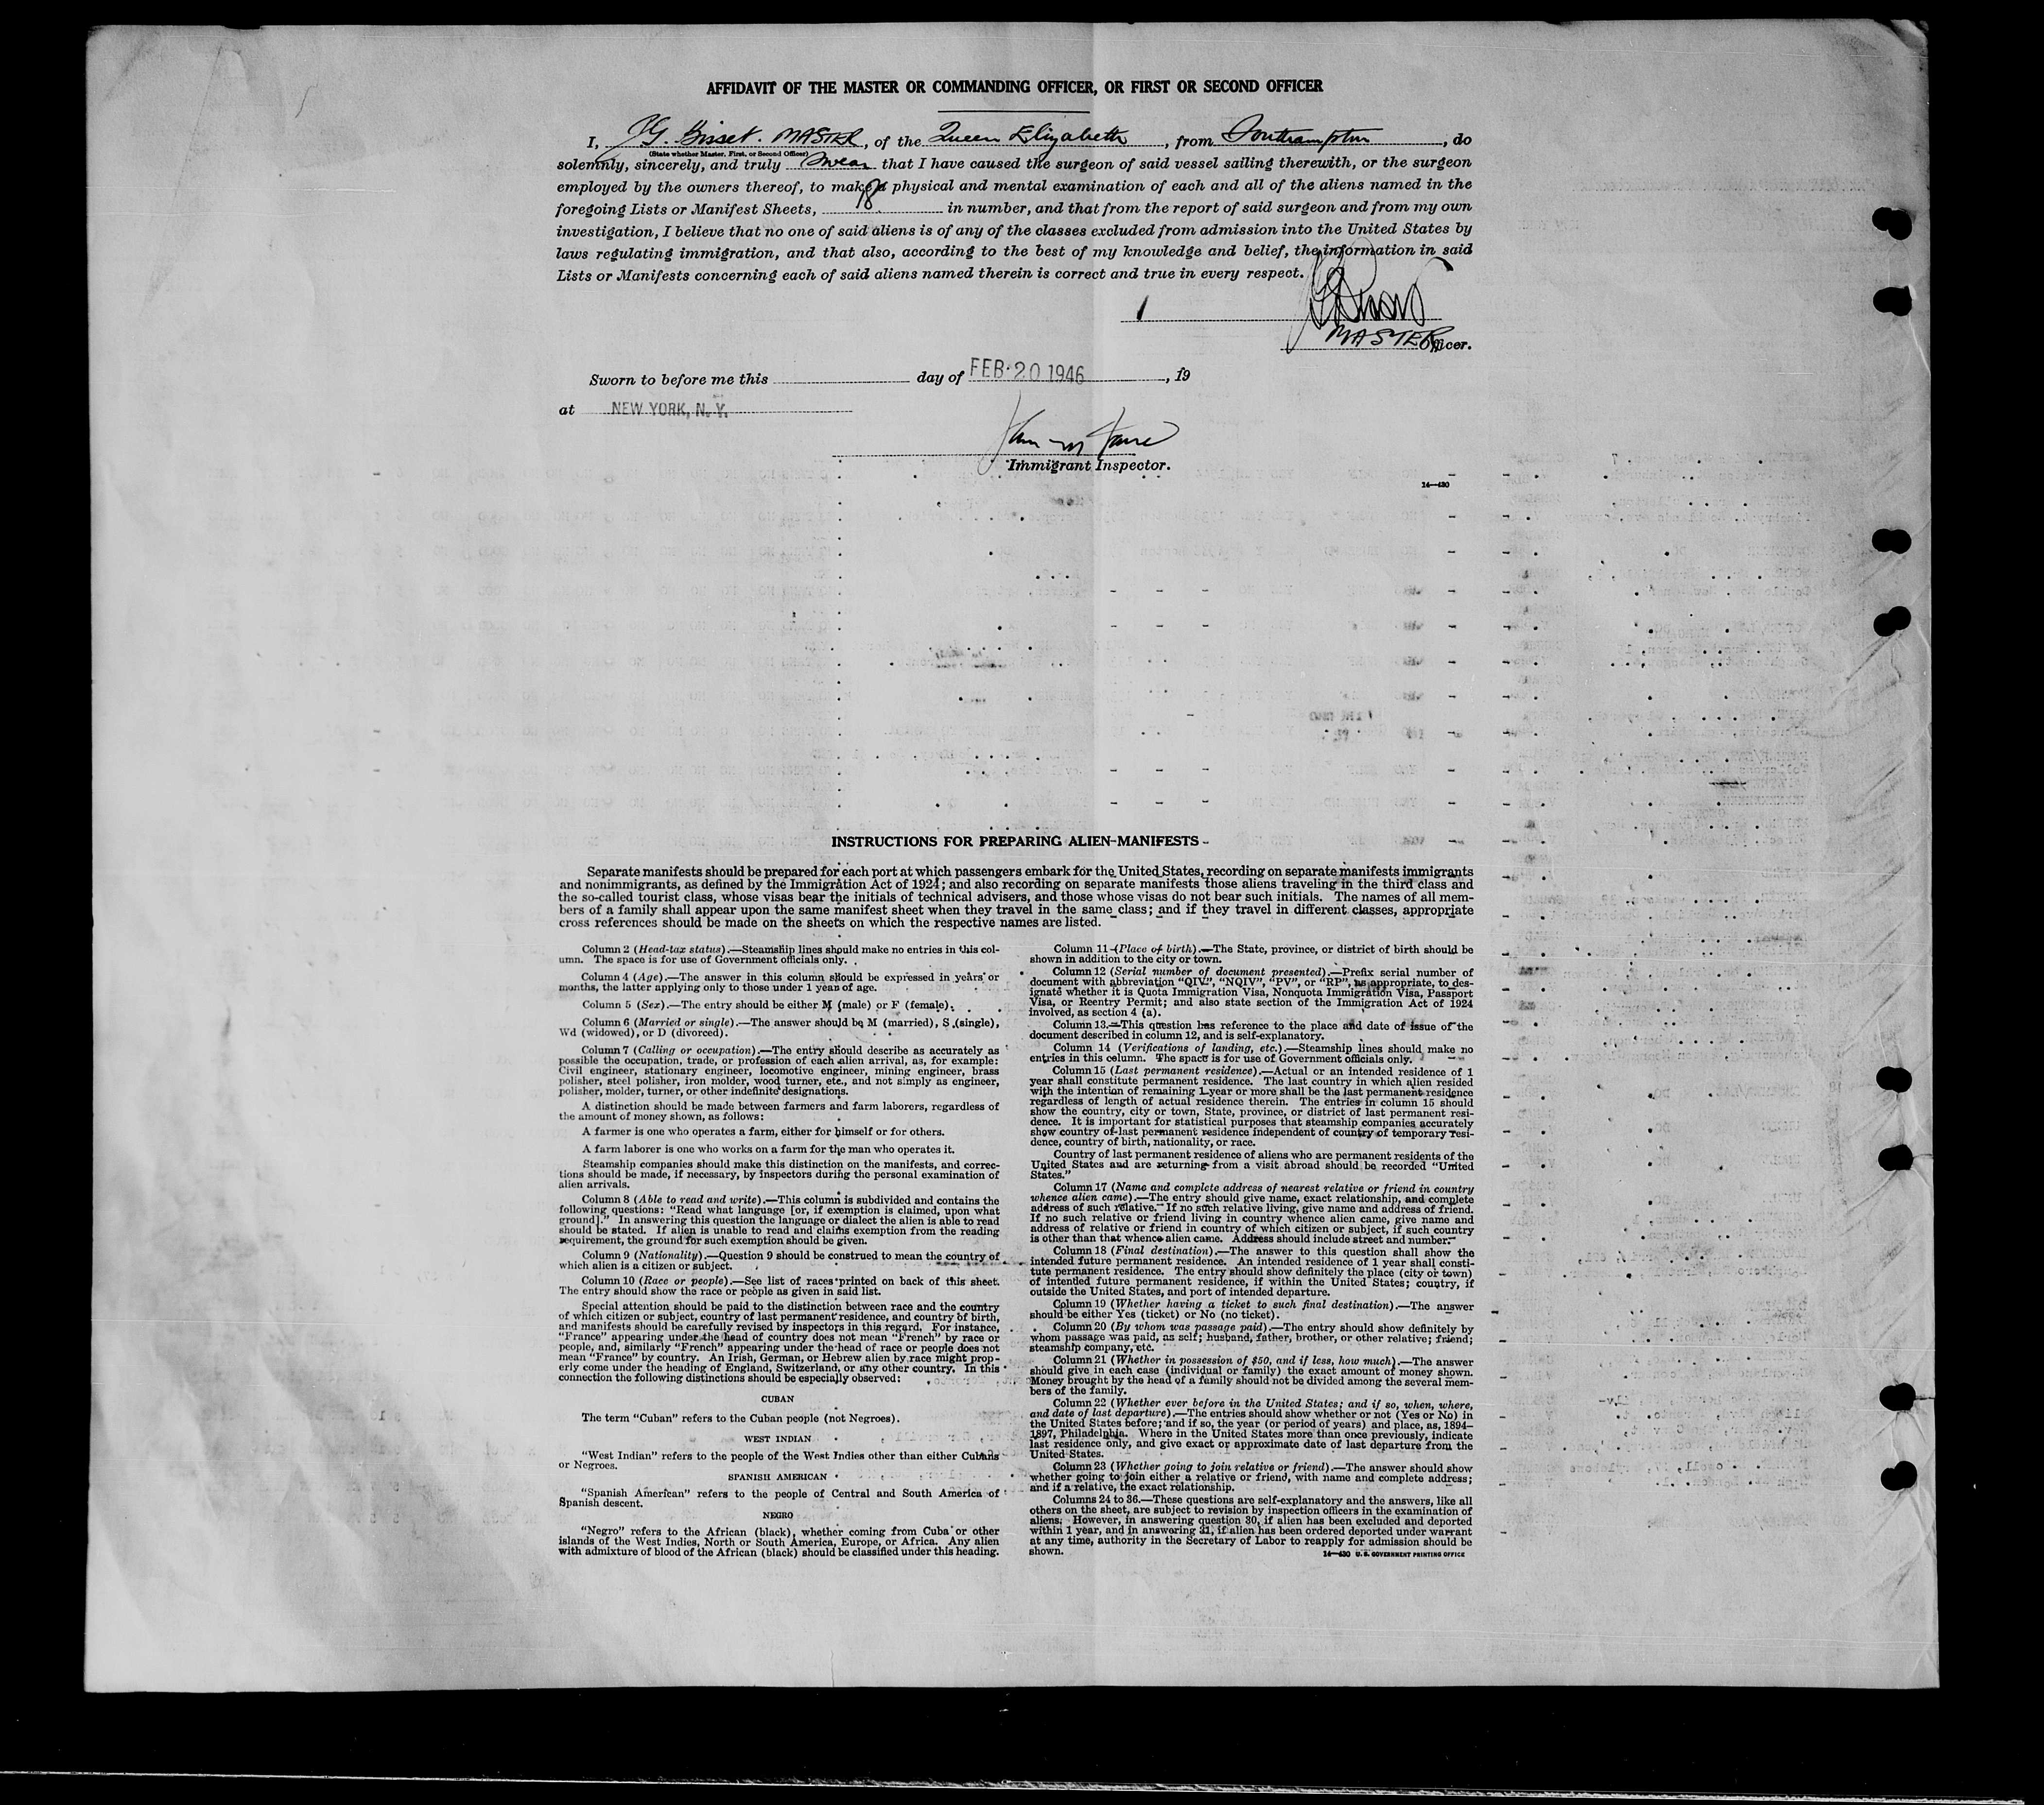 AFFIDAVIT OF THE MASTER OR COMMANDING OFFICER, OR FIRST OR SECOND OFFICER
I, J G. Bisset. MASTER, of the Queen Elizabeth, from Southampton, do
(State whether Master, First, or Second Officer)
solemnly, sincerely, and truly swear that I have caused the surgeon of said vessel sailing therewith, or the surgeon
employed by the owners thereof, to make a physical and mental examination of each and all of the aliens named in the
foregoing Lists or Manifest Sheets, 18 in number, and that from the report of said surgeon and from my own
investigation, I believe that no one of said aliens is of any of the classes excluded from admission into the United States by
laws regulating immigration, and that also, according to the best of my knowledge and belief, the information in said
Lists or Manifests concerning each of said aliens named therein is correct and true in every respect.
MASTER Officer.
Sworn to before me this day of FEB 20 1946, 19
at NEW YORK, N. Y.
Immigrant Inspector.
14—430
INSTRUCTIONS FOR PREPARING ALIEN MANIFESTS
Separate manifests should be prepared for each port at which passengers embark for the United States, recording on separate manifests immigrants
and nonimmigrants, as defined by the Immigration Act of 1924; and also recording on separate manifests those aliens traveling in the third class and
the so-called tourist class, whose visas bear the initials of technical advisers, and those whose visas do not bear such initials. The names of all mem-
bers of a family shall appear upon the same manifest sheet when they travel in the same class; and if they travel in different classes, appropriate
cross references should be made on the sheets on which the respective names are listed.
Column 2 (Head-tax status).—Steamship lines should make no entries in this col-
umn. The space is for use of Government officials only.
Column 4 (Age).—The answer in this column should be expressed in years or
months, the latter applying only to those under 1 year of age.
Column 5 (Sex).—The entry should be either M (male) or F (female).
Column 6 (Married or single).—The answer should be M (married), S (single),
Wd (widowed), or D (divorced).
Column 7 (Calling or occupation).—The entry should describe as accurately as
possible the occupation, trade, or profession of each alien arrival, as, for example:
Civil engineer, stationary engineer, locomotive engineer, mining engineer, brass
polisher, steel polisher, iron molder, wood turner, etc., and not simply as engineer,
polisher, molder, turner, or other indefinite designations.
A distinction should be made between farmers and farm laborers, regardless of
the amount of money shown, as follows:
A farmer is one who operates a farm, either for himself or for others.
A farm laborer is one who works on a farm for the man who operates it.
Steamship companies should make this distinction on the manifests, and correc-
tions should be made, if necessary, by inspectors during the personal examination of
alien arrivals.
Column 8 (Able to read and write).—This column is subdivided and contains the
following questions: “Read what language [or, if exemption is claimed, upon what
ground].” In answering this question the language or dialect the alien is able to read
should be stated. If alien is unable to read and claims exemption from the reading
requirement, the ground for such exemption should be given.
Column 9 (Nationality).—Question 9 should be construed to mean the country of
which alien is a citizen or subject.
Column 10 (Race or people).—See list of races printed on back of this sheet.
The entry should show the race or people as given in said list.
Special attention should be paid to the distinction between race and the country
of which citizen or subject, country of last permanent residence, and country of birth,
and manifests should be carefully revised by inspectors in this regard. For instance,
“France” appearing under the head of country does not mean “French” by race or
people, and, similarly “French” appearing under the head of race or people does not
mean “France” by country. An Irish, German, or Hebrew alien by race might prop-
erly come under the heading of England, Switzerland, or any other country. In this
connection the following distinctions should be especially observed:
CUBAN
The term “Cuban” refers to the Cuban people (not Negroes).
WEST INDIAN
“West Indian” refers to the people of the West Indies other than either Cubans
or Negroes.
SPANISH AMERICAN
“Spanish American” refers to the people of Central and South America of
Spanish descent.
NEGRO
“Negro” refers to the African (black), whether coming from Cuba or other
islands of the West Indies, North or South America, Europe, or Africa. Any alien
with admixture of blood of the African (black) should be classified under this heading.
Column 11 (Place of birth).—The State, province, or district of birth should be
shown in addition to the city or town.
Column 12 (Serial number of document presented).—Prefix serial number of
document with abbreviation “QIV”, “NQIV”, “PV”, or “RP”, as appropriate, to des-
ignate whether it is Quota Immigration Visa, Nonquota Immigration Visa, Passport
Visa, or Reentry Permit; and also state section of the Immigration Act of 1924
involved, as section 4 (a).
Column 13.—This question has reference to the place and date of issue of the
document described in column 12, and is self-explanatory.
Column 14 (Verifications of landing, etc.).—Steamship lines should make no
entries in this column. The space is for use of Government officials only.
Column 15 (Last permanent residence).—Actual or an intended residence of 1
year shall constitute permanent residence. The last country in which alien resided
with the intention of remaining 1 year or more shall be the last permanent residence
regardless of length of actual residence therein. The entries in column 15 should
show the country, city or town, State, province, or district of last permanent resi-
dence. It is important for statistical purposes that steamship companies accurately
show country of last permanent residence independent of country of temporary resi-
dence, country of birth, nationality, or race.
Country of last permanent residence of aliens who are permanent residents of the
United States and are returning from a visit abroad should be recorded “United
States.”
Column 17 (Name and complete address of nearest relative or friend in country
whence alien came).—The entry should give name, exact relationship, and complete
address of such relative. If no such relative living, give name and address of friend.
If no such relative or friend living in country whence alien came, give name and
address of relative or friend in country of which citizen or subject, if such country
is other than that whence alien came. Address should include street and number.
Column 18 (Final destination).—The answer to this question shall show the
intended future permanent residence. An intended residence of 1 year shall consti-
tute permanent residence. The entry should show definitely the place (city or town)
of intended future permanent residence, if within the United States; country, if
outside the United States, and port of intended departure.
Column 19 (Whether having a ticket to such final destination).—The answer
should be either Yes (ticket) or No (no ticket).
Column 20 (By whom was passage paid).—The entry should show definitely by
whom passage was paid, as self; husband, father, brother, or other relative; friend;
steamship company, etc.
Column 21 (Whether in possession of $50, and if less, how much).—The answer
should give in each case (individual or family) the exact amount of money shown.
Money brought by the head of a family should not be divided among the several mem-
bers of the family.
Column 22 (Whether ever before in the United States; and if so, when, where,
and date of last departure).—The entries should show whether or not (Yes or No) in
the United States before; and if so, the year (or period of years) and place, as, 1894–
1897, Philadelphia. Where in the United States more than once previously, indicate
last residence only, and give exact or approximate date of last departure from the
United States.
Column 23 (Whether going to join relative or friend).—The answer should show
whether going to join either a relative or friend, with name and complete address;
and if a relative, the exact relationship.
Columns 24 to 36.—These questions are self-explanatory and the answers, like all
others on the sheet, are subject to revision by inspection officers in the examination of
aliens. However, in answering question 30, if alien has been excluded and deported
within 1 year, and in answering 31, if alien has been ordered deported under warrant
at any time, authority in the Secretary of Labor to reapply for admission should be
shown.
14—430 U. S. GOVERNMENT PRINTING OFFICE